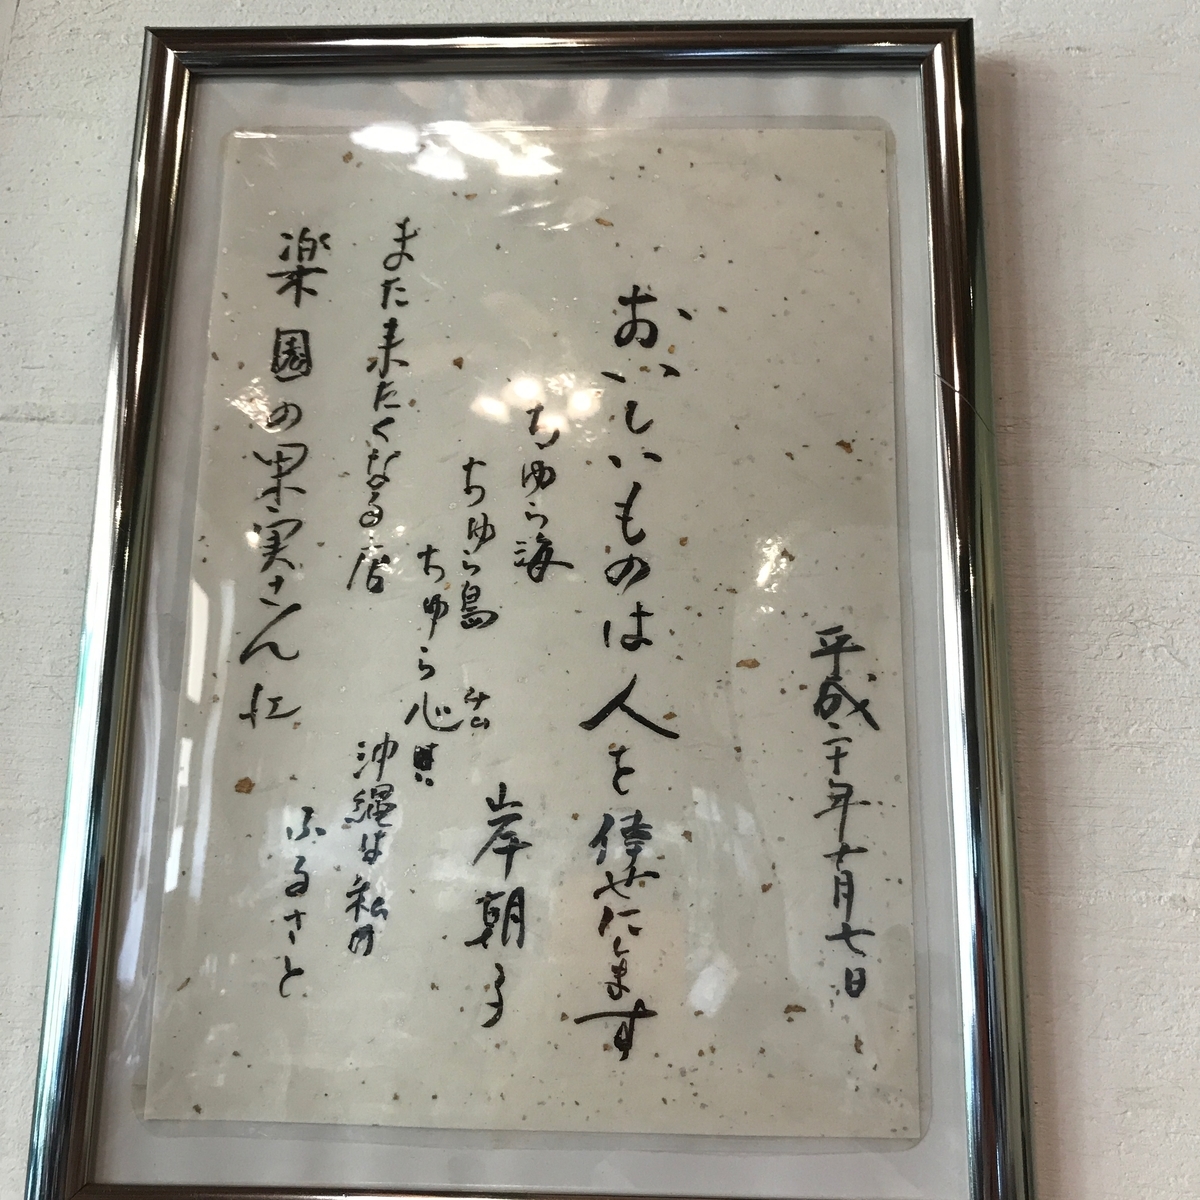 平成二十年十月七日
おいしいものは人を倖せにします
ちゅら海
ちゅら島
ちゅら心
岸朝子
また来たくなる店
沖縄は私の
ふるさと
楽園の果実さんに